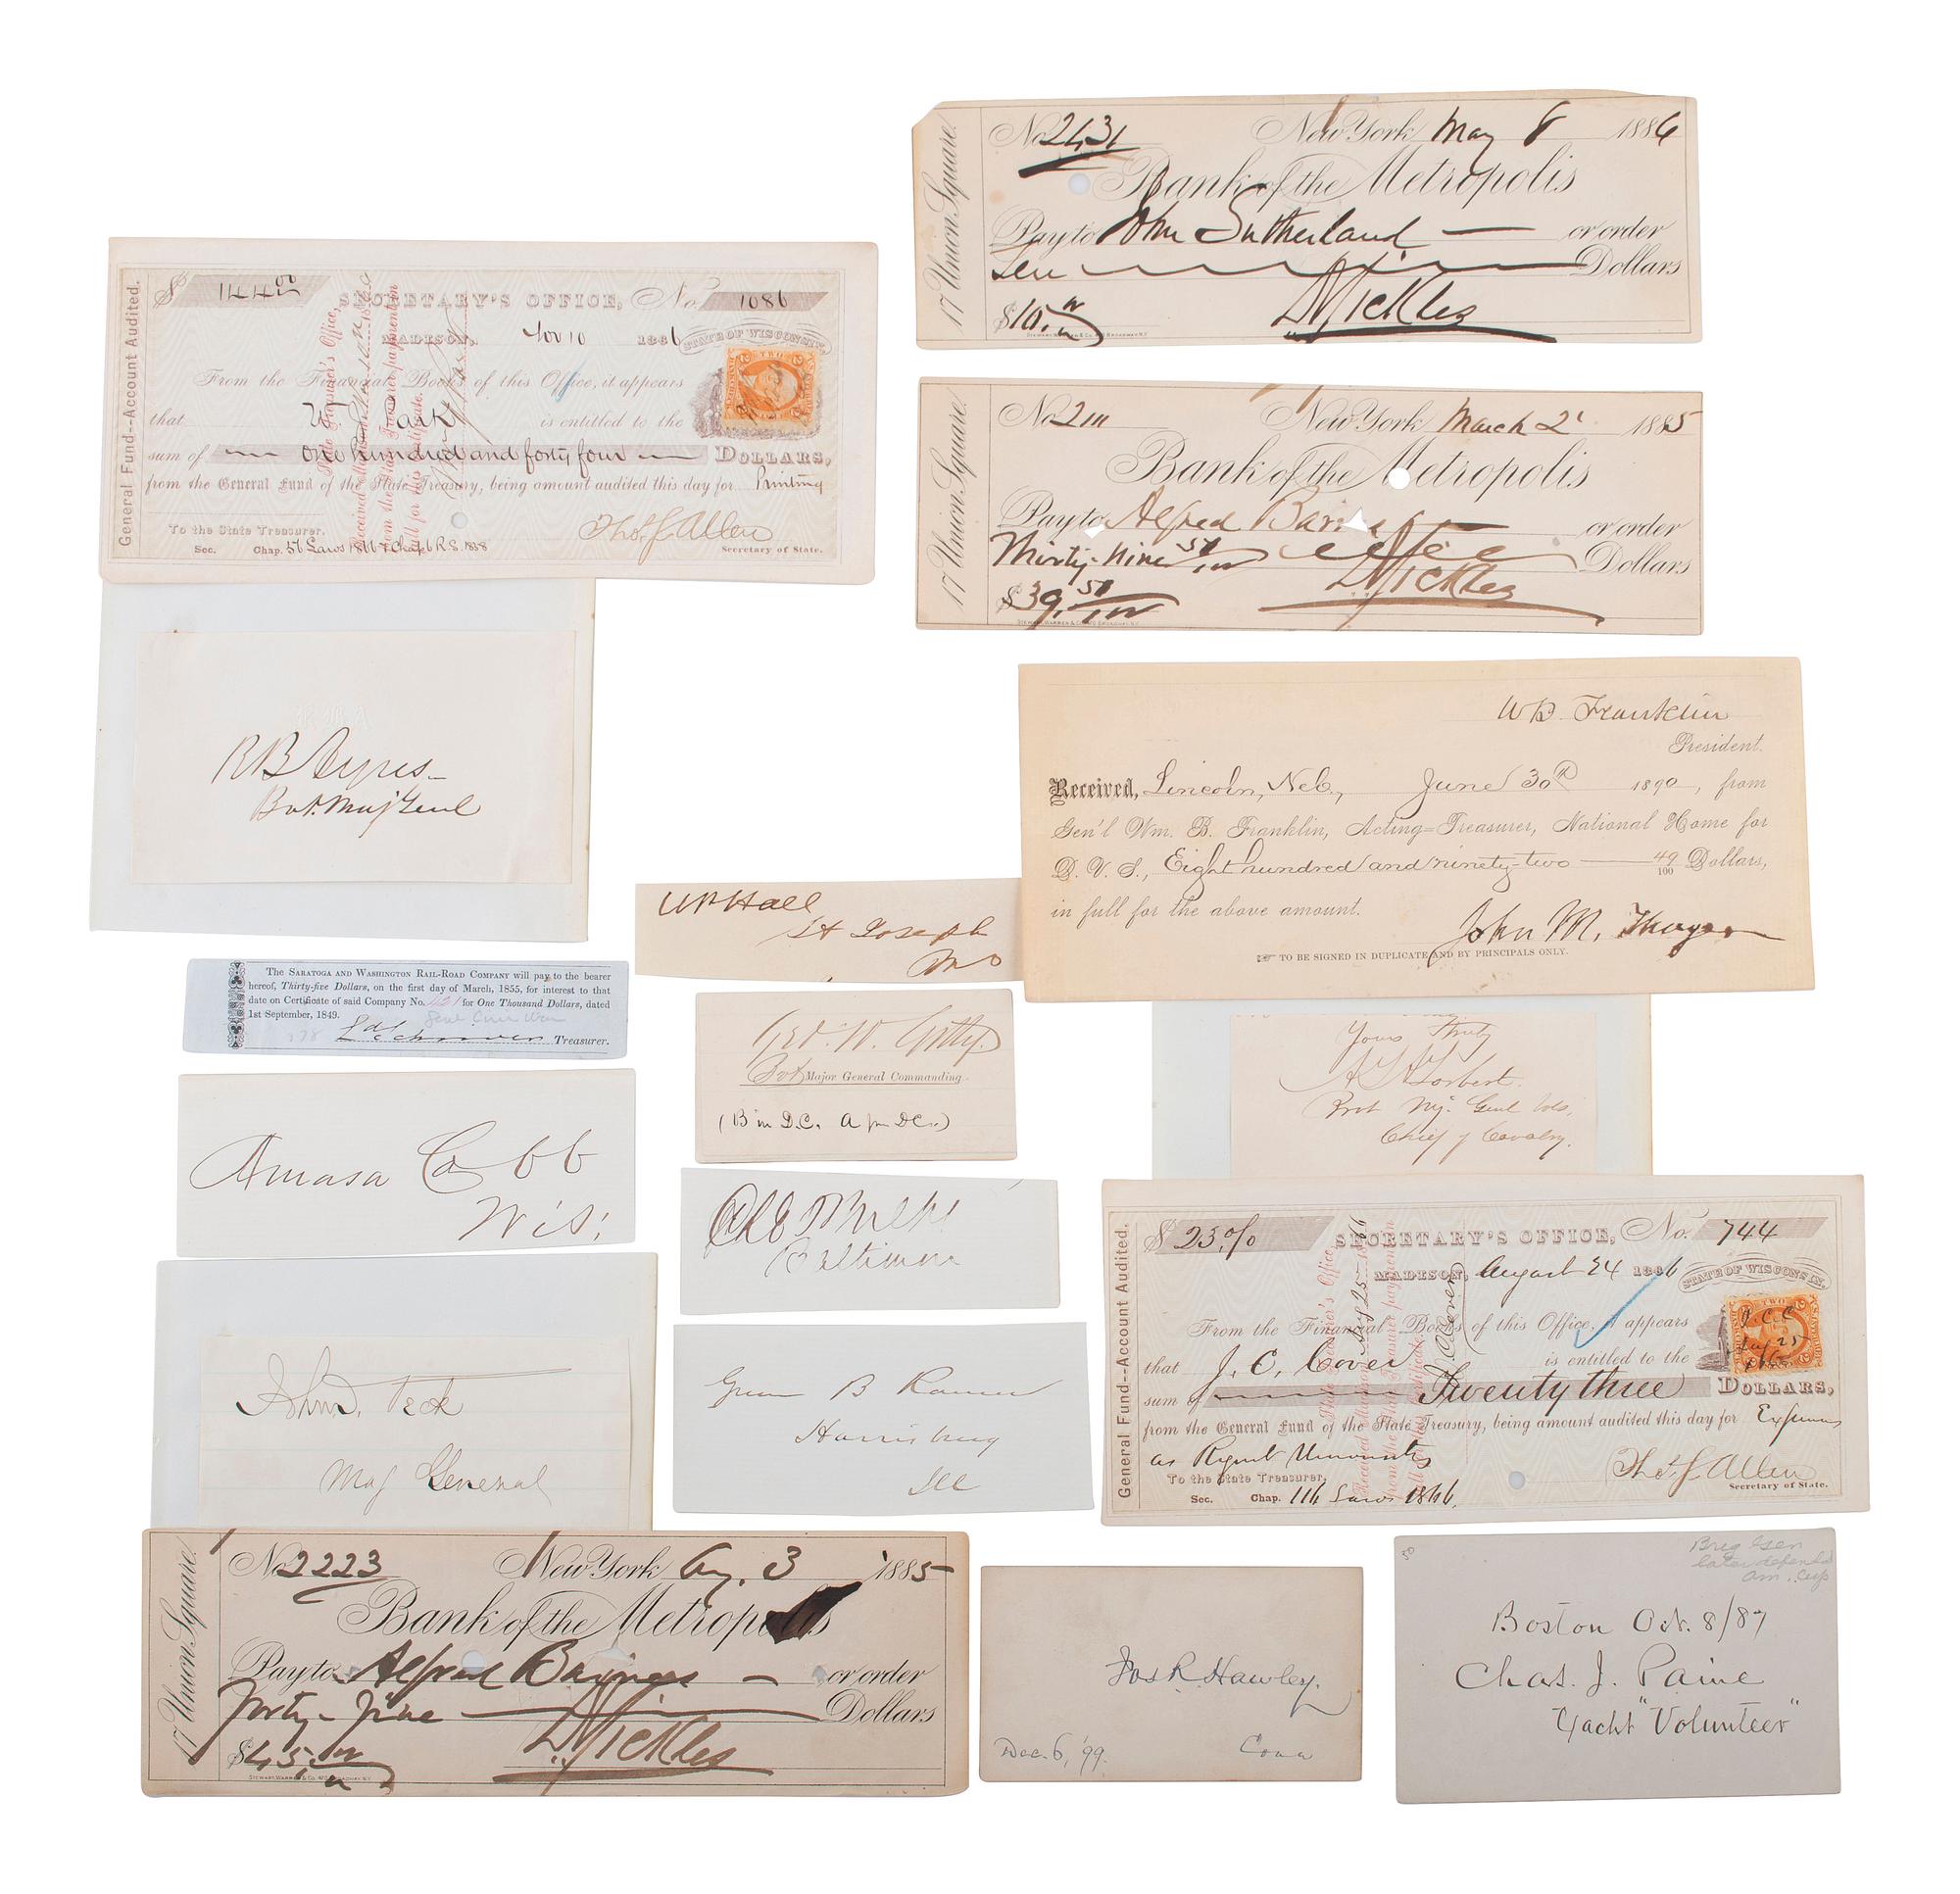 No. 2431 New York May 8 1886
Bank of the Metropolis
Pay to John Sutherland or order
Ten Dollars
$10.
D Sickles
17 Union Square.
STEWART, WARREN & CO.
$ 144 00 SECRETARY'S OFFICE, No. 1086
MADISON, Nov 10 1866
STATE OF WISCONSIN.
From the Financial Books of this Office, it appears
that is entitled to the
sum of One hundred and forty four DOLLARS,
from the General Fund of the State Treasury, being amount audited this day for Printing
To the State Treasurer.
Thos. S. Allen
Sec. Chap. 56 Laws 1866 & Chap 6 R.S. 1858 Secretary of State.
General Fund--Account Audited.
No. 2111 New York March 2 1885
Bank of the Metropolis
Pay to Alfred or order
Thirty-nine 50 Dollars
$39. 50
D Sickles
17 Union Square.
R B Ayres
Bvt. Maj Genl
W B Franklin
President.
Received, Lincoln, Neb., June 30th 1890, from
Gen'l Wm. B. Franklin, Acting=Treasurer, National Home for
D. V. S., Eight hundred and ninety-two 49/100 Dollars,
in full for the above amount.
John M. Thayer
TO BE SIGNED IN DUPLICATE AND BY PRINCIPALS ONLY.
W P Hall
St Joseph
Mo
The SARATOGA AND WASHINGTON RAIL-ROAD COMPANY will pay to the bearer
hereof, Thirty-five Dollars, on the first day of March, 1855, for interest to that
date on Certificate of said Company No. for One Thousand Dollars, dated
1st September, 1849.
Treasurer.
Geo. W. Getty
Bvt Major General Commanding.
Yours Truly
Bvt Mj. Genl Vols.
Chief of Cavalry.
Amasa Cobb
Wis.
Baltimore
$ 23.00 SECRETARY'S OFFICE, No. 744
MADISON, August 24 1866
STATE OF WISCONSIN.
From the Financial Books of this Office, it appears
that J. C. Cover is entitled to the
sum of Twenty three DOLLARS,
from the General Fund of the State Treasury, being amount audited this day for Expenses
as Regent
To the State Treasurer.
Thos. S. Allen
Sec. Chap. 114 Laws 1866. Secretary of State.
General Fund--Account Audited.
John J. Peck
Maj General
Green B Raum
Harrisburg
Ill
No. 2223 New York Aug. 3 1885
Bank of the Metropolis
Pay to Alfred or order
Forty-five Dollars
$45.
D Sickles
17 Union Square.
Jos R. Hawley.
Dec. 6, '99. Conn
Brig Gen
later defended
Am. Cup
Boston Oct. 8/87
Chas. J. Paine
Yacht "Volunteer"